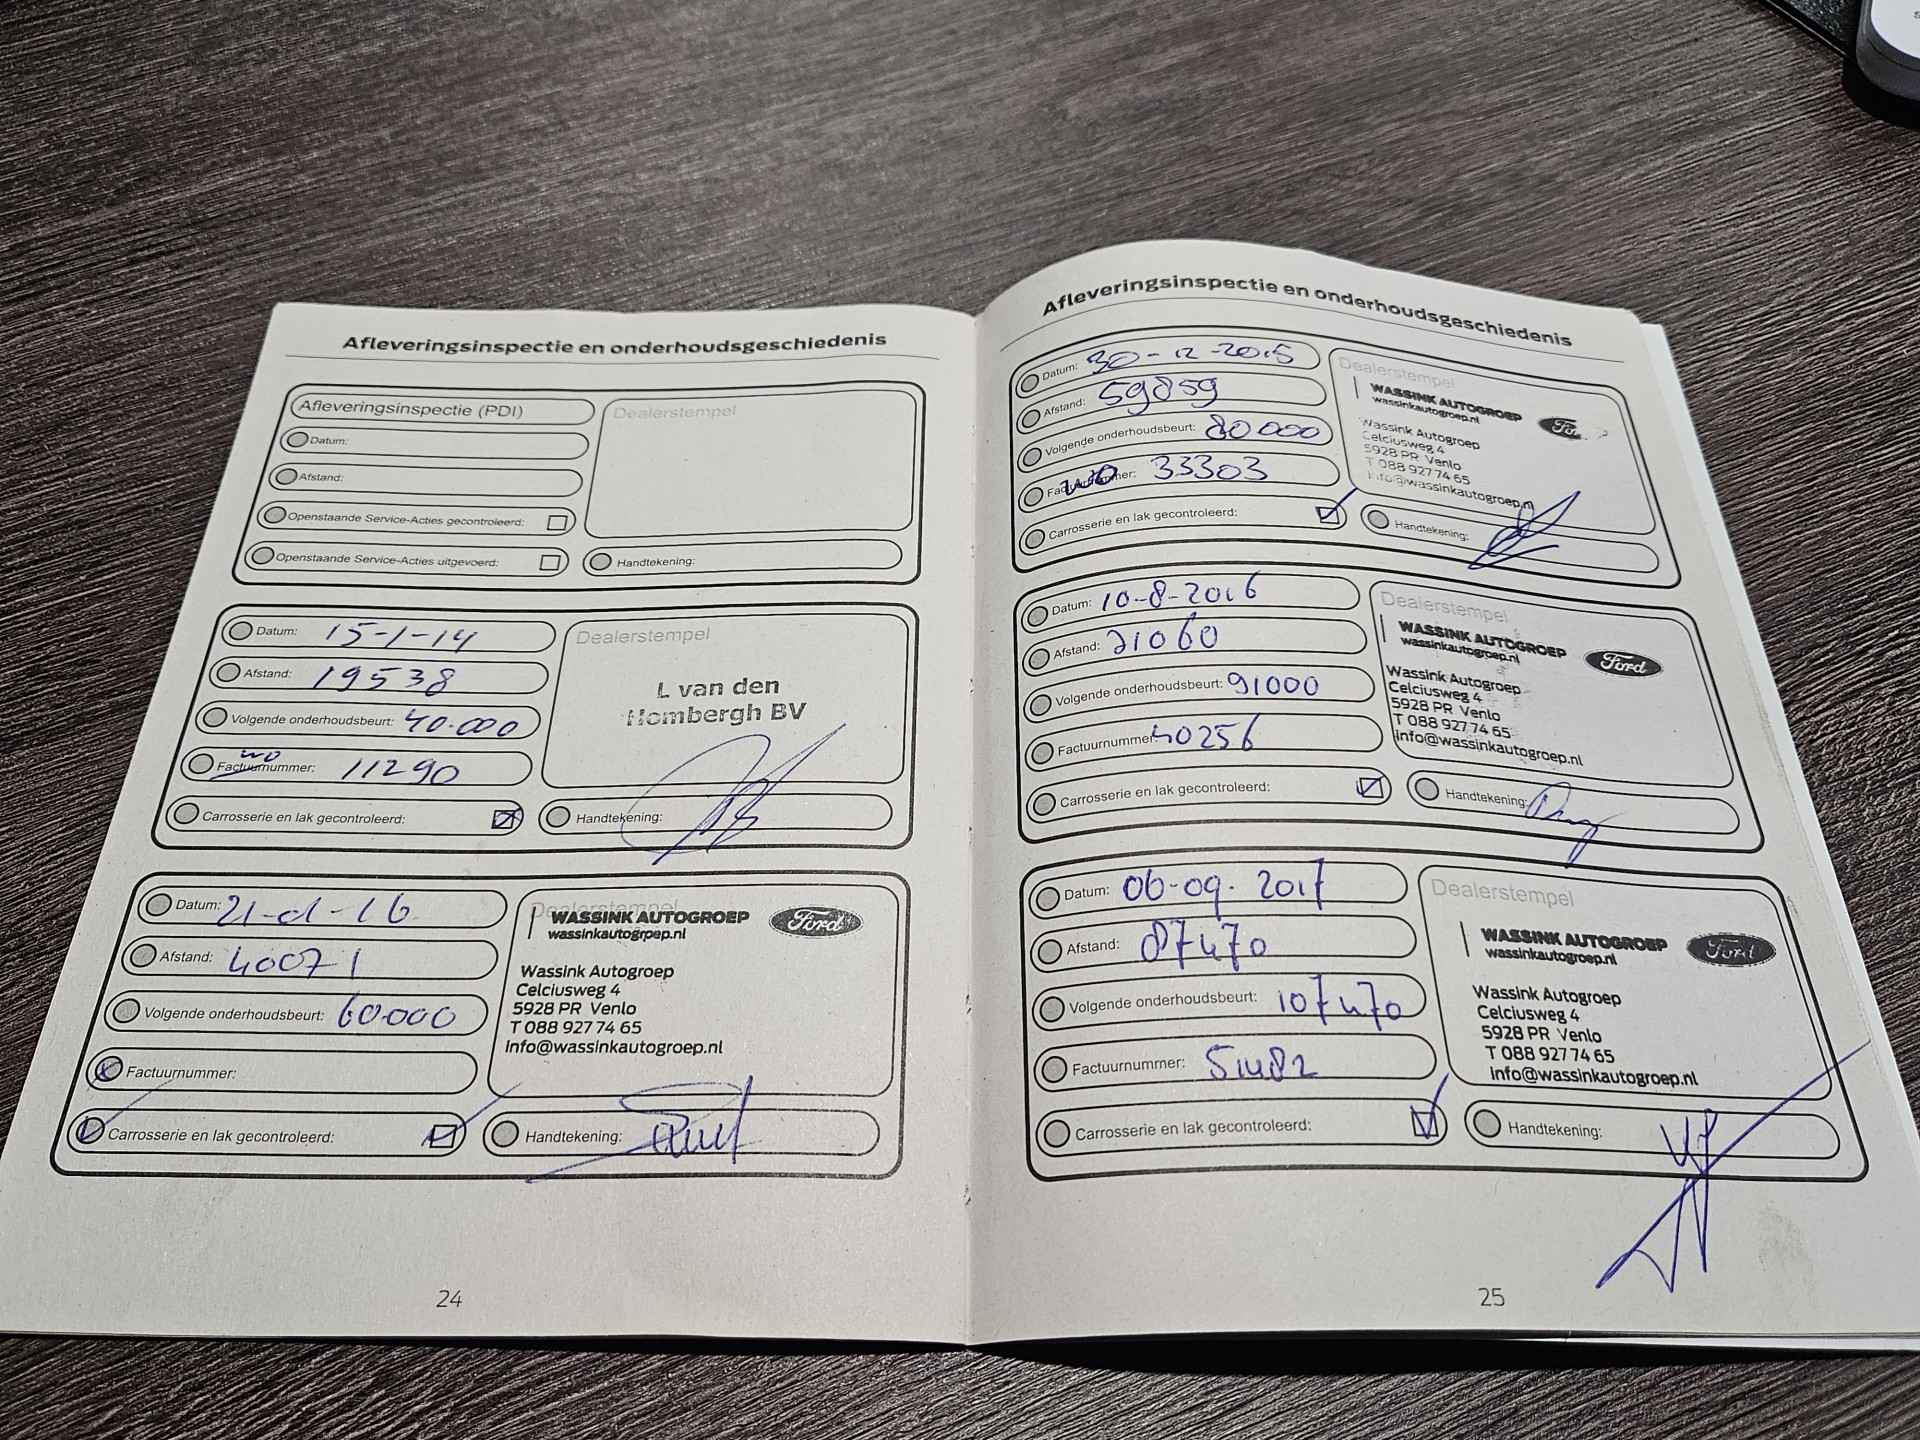 Afleveringsinspectie en onderhoudsgeschiedenis
Afleveringsinspectie (PDI)
Dealerstempel
Datum:
Afstand:
Openstaande Service-Acties gecontroleerd:
Openstaande Service-Acties uitgevoerd:
Handtekening:
Datum: 15-1-14
Dealerstempel
Afstand: 19538
L van den
Hombergh BV
Volgende onderhoudsbeurt: 40.000
wo
Factuurnummer: 11290
Carrosserie en lak gecontroleerd:
Handtekening:
Datum:
Dealerstempel
WASSINK AUTOGROEP
wassinkautogroep.nl
Ford
Afstand: 40071
Wassink Autogroep
Celciusweg 4
5928 PR Venlo
T 088 927 74 65
Info@wassinkautogroep.nl
Volgende onderhoudsbeurt: 60.000
Factuurnummer:
Carrosserie en lak gecontroleerd:
Handtekening:
24
Afleveringsinspectie en onderhoudsgeschiedenis
Datum: 30-12-2015
Dealerstempel
WASSINK AUTOGROEP
wassinkautogroep.nl
Afstand: 59859
Wassink Autogroep
Celciusweg 4
5928 PR Venlo
T 088 927 74 65
Info@wassinkautogroep.nl
Volgende onderhoudsbeurt: 80000
wo
Factuurnummer: 33303
Carrosserie en lak gecontroleerd:
Handtekening:
Datum: 10-8-2016
Dealerstempel
WASSINK AUTOGROEP
wassinkautogroep.nl
Ford
Afstand: 71060
Wassink Autogroep
Celciusweg 4
5928 PR Venlo
T 088 927 74 65
Info@wassinkautogroep.nl
Volgende onderhoudsbeurt: 91000
Factuurnummer: 40256
Carrosserie en lak gecontroleerd:
Handtekening:
Datum: 06-09-2017
Dealerstempel
WASSINK AUTOGROEP
wassinkautogroep.nl
Ford
Afstand: 87470
Wassink Autogroep
Celciusweg 4
5928 PR Venlo
T 088 927 74 65
Info@wassinkautogroep.nl
Volgende onderhoudsbeurt: 107470
Factuurnummer: 51482
Carrosserie en lak gecontroleerd:
Handtekening:
25